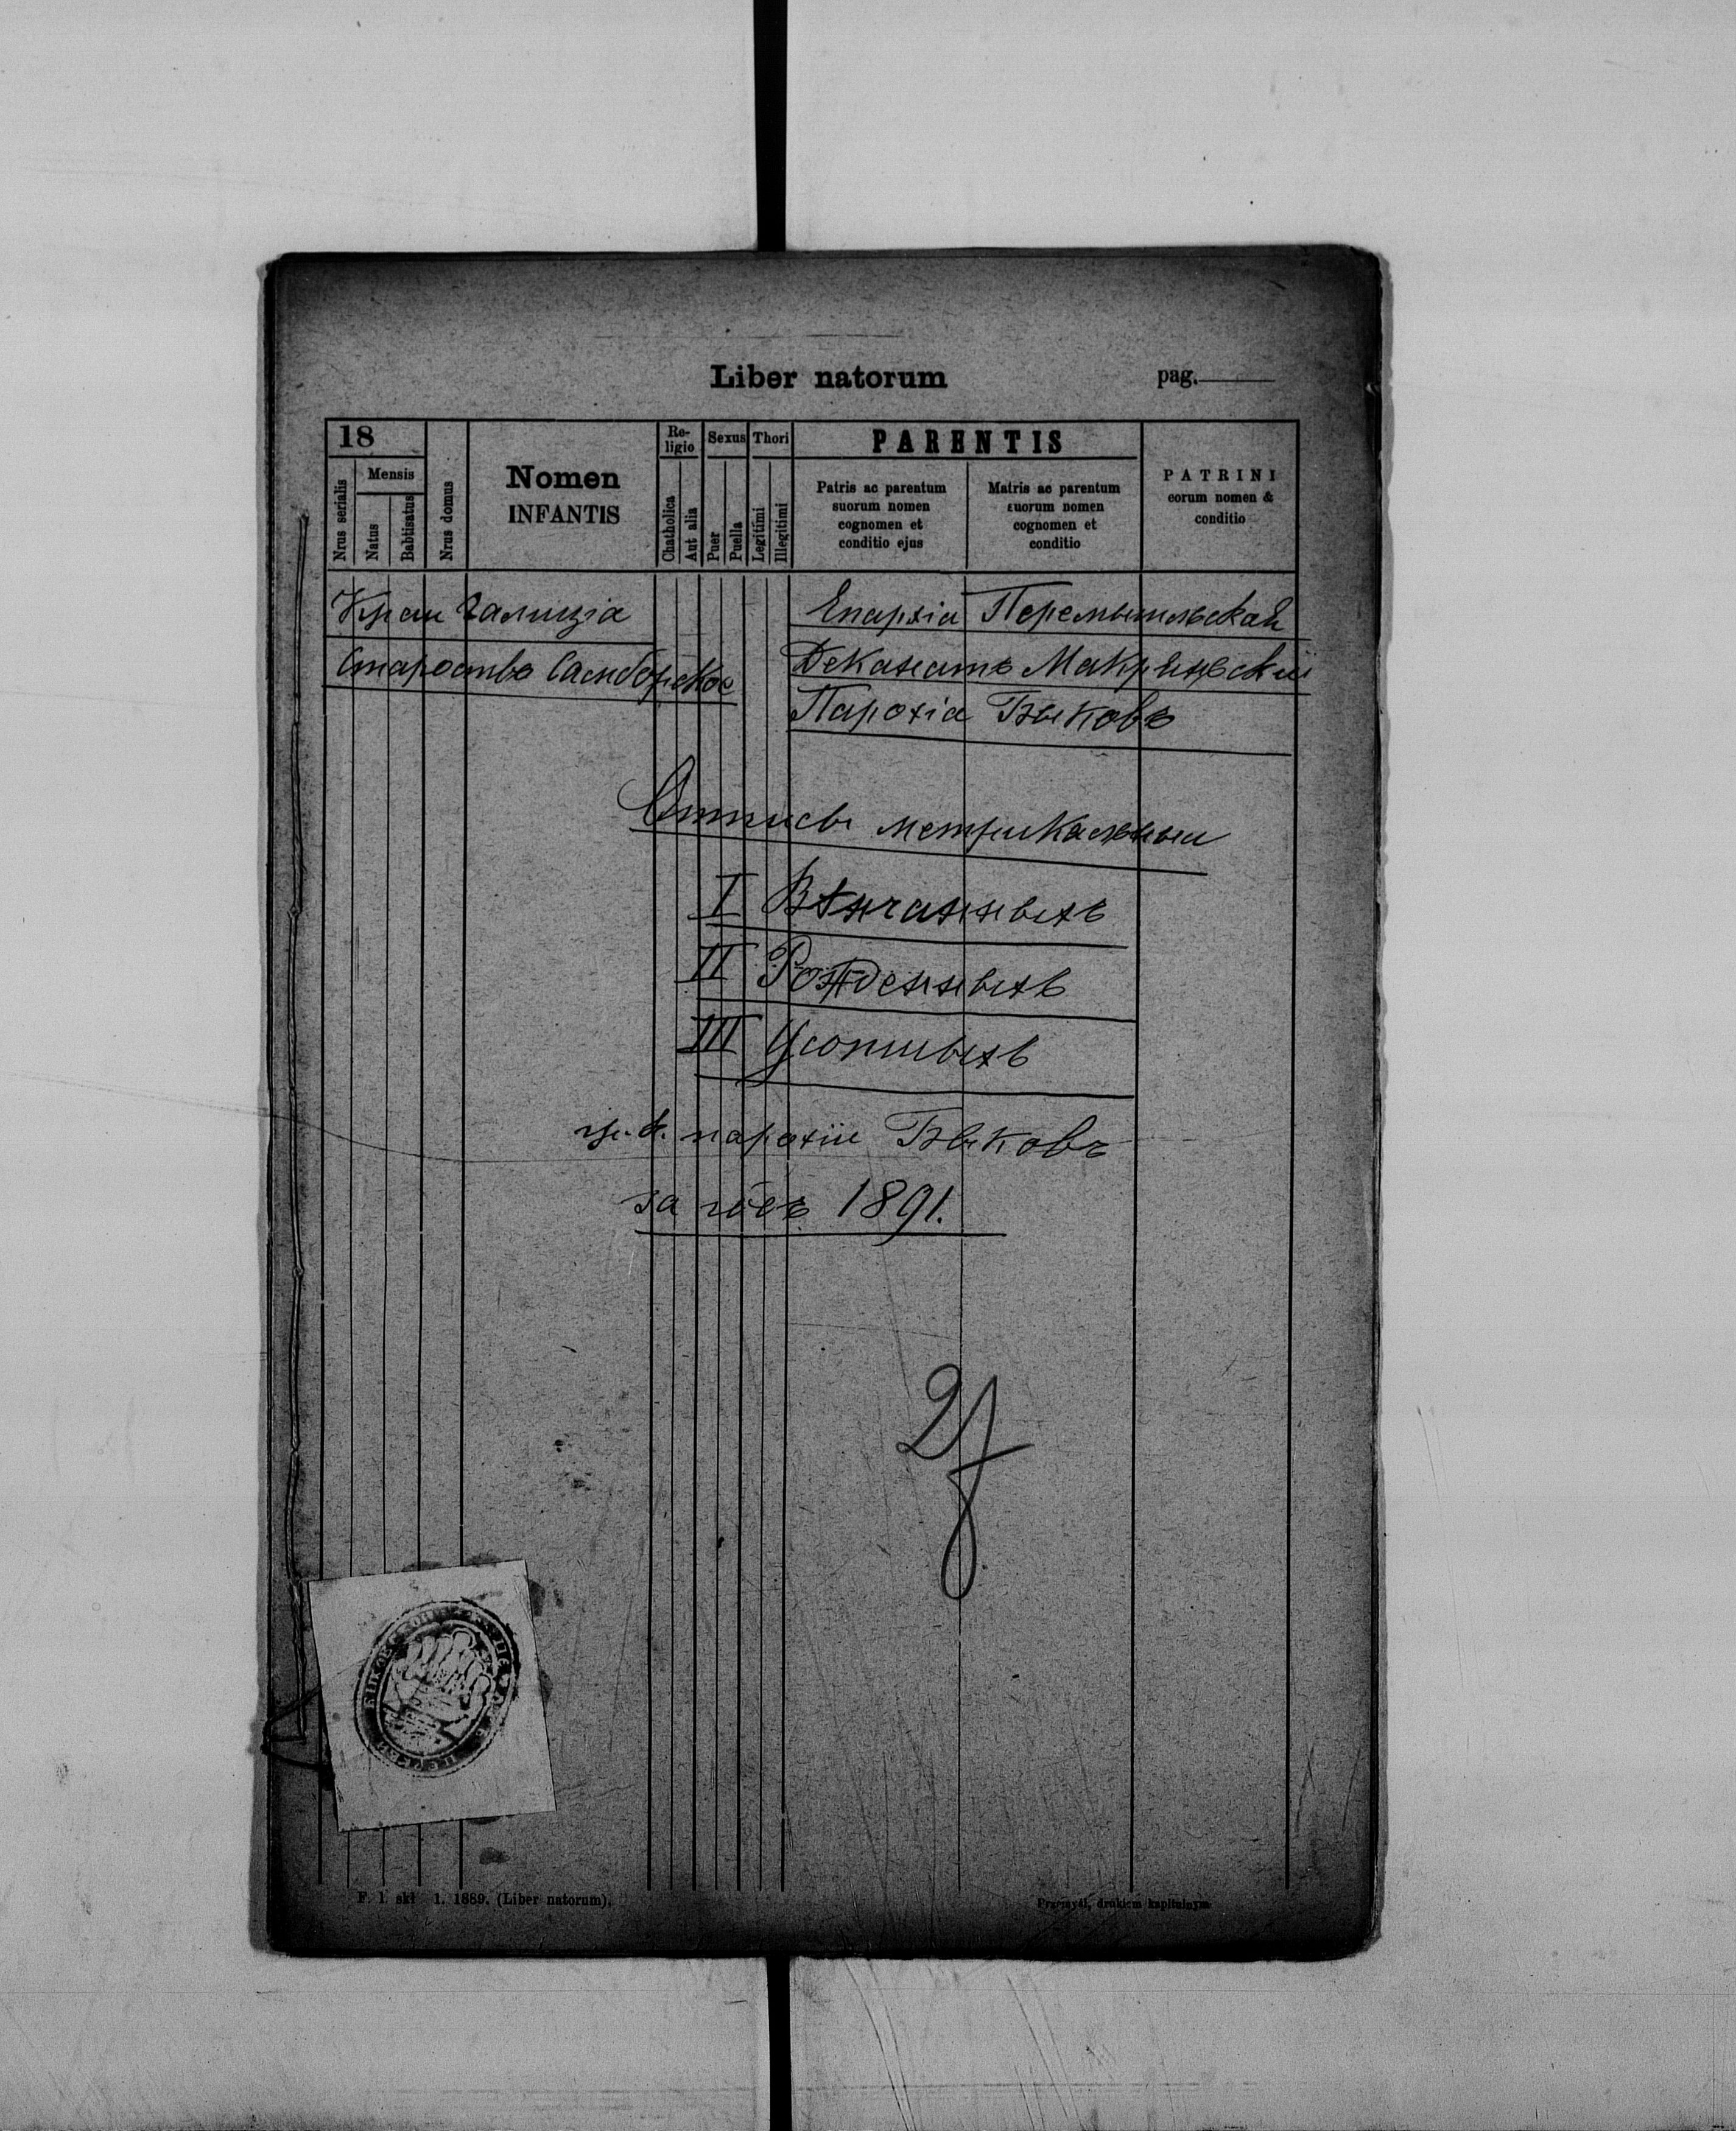 Liber natorum pag.
18
Nrus serialis
Mensis
Natus
Babtisatus
Nrus domus
Nomen
INFANTIS
Re-
ligio
Chatholica
Aut alia
Sexus
Puer
Puella
Thori
Legitimi
Illegitimi
PARENTIS
Patris ac parentum
suorum nomen
cognomen et
conditio ejus
Matris ac parentum
suorum nomen
cognomen et
conditio
PATRINI
eorum nomen &
conditio
Краи Галиція
Староство Самборское
Епархія Перемышльская
Деканатъ Мокрянскій
Парохія Быковъ
Отписы метрикальныи
I Вѣнчанныхъ
II Рожденныхъ
III Усопшихъ
гр. к. парохіи Быковъ
за рôкъ 1891.
F. 1. skł 1. 1889. (Liber natorum).
Przemyśl, drukiem kapitulnym